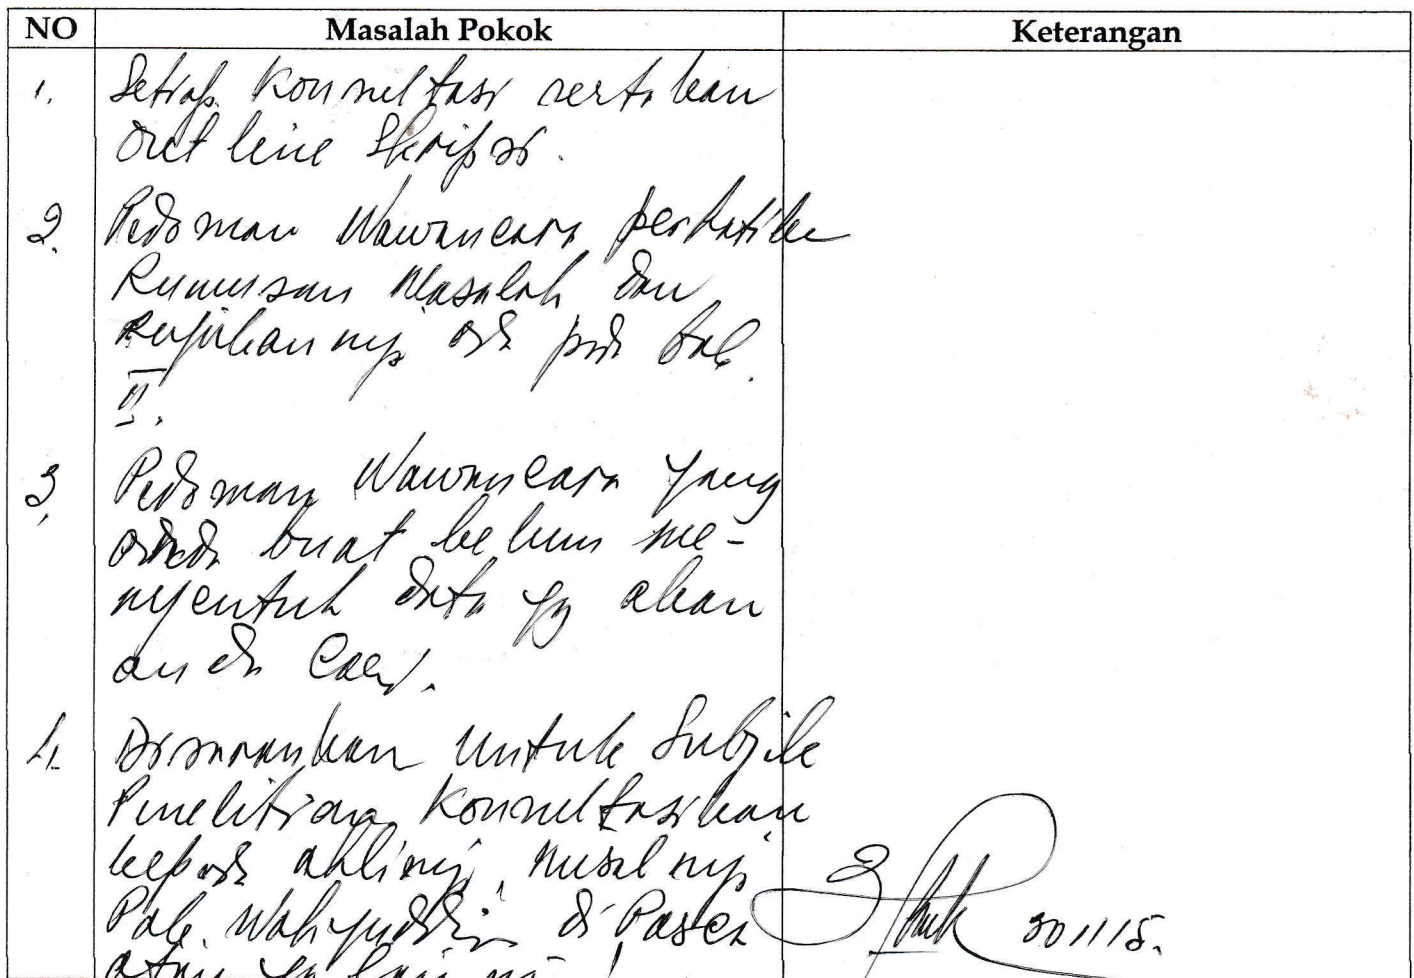 NO Masalah Pokok Keterangan
1. Setiap Konsultasi sertakan
Out line Skripsi.
2. Pedoman Wawancara perhatikan
Rumusan Masalah dan
Rujukannya ada pada bab.
II.
3, Pedoman Wawancara yang
anda buat belum me-
nyentuh data yg akan
anda cari.
4. Disarankan untuk Subjek
Penelitian Konsultasikan
kepada ahlinya, misalnya
Pak. Wahyuddin di Pasca
atau yg lain nya!
30 11 15.